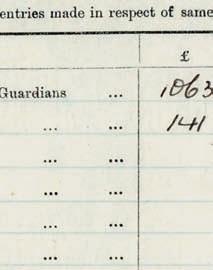 entries made in respect of same
£
Guardians ... 1063
... ... 141
... ...
... ...
... ...
... ...